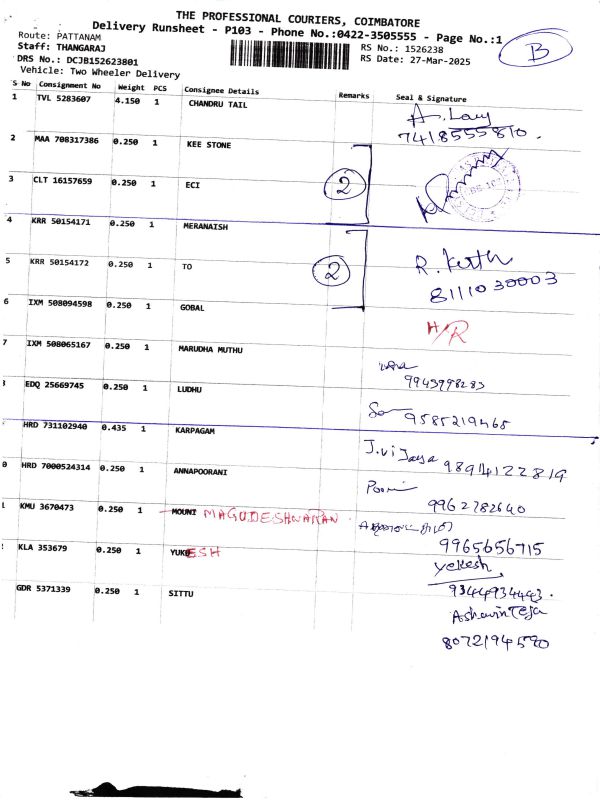 THE PROFESSIONAL COURIERS, COIMBATORE
Delivery Runsheet - P103 - Phone No.:0422-3505555 - Page No.:1
Route: PATTANAM
RS No.: 1526238
B
Staff: THANGARAJ
RS Date: 27-Mar-2025
DRS No.: DCJB152623801
Vehicle: Two Wheeler Delivery
S No Consignment No Weight PCS Consignee Details Remarks Seal & Signature
1 TVL 5283607 4.150 1 CHANDRU TAIL
7418555810.
2 MAA 708317386 0.250 1 KEE STONE
3 CLT 16157659 0.250 1 ECI 2
4 KRR 50154171 0.250 1 MERANAISH
5 KRR 50154172 0.250 1 TO 2 R. Kerth
8111030003
6 IXM 508094598 0.250 1 GOBAL H/R
7 IXM 508065167 0.250 1 MARUDHA MUTHU
9943998283
EDQ 25669745 0.250 1 LUDHU 9585219465
HRD 731102940 0.435 1 KARPAGAM J.Vijaya 9894122819
0 HRD 7000524314 0.250 1 ANNAPOORANI
9962782640
KMU 3670473 0.250 1 MOUNI MAGUDESHWARAN
9965656715
KLA 353679 0.250 1 YUKESH yekesh
9344934443.
GDR 5371339 0.250 1 SITTU Ashwin Teja
8072194590